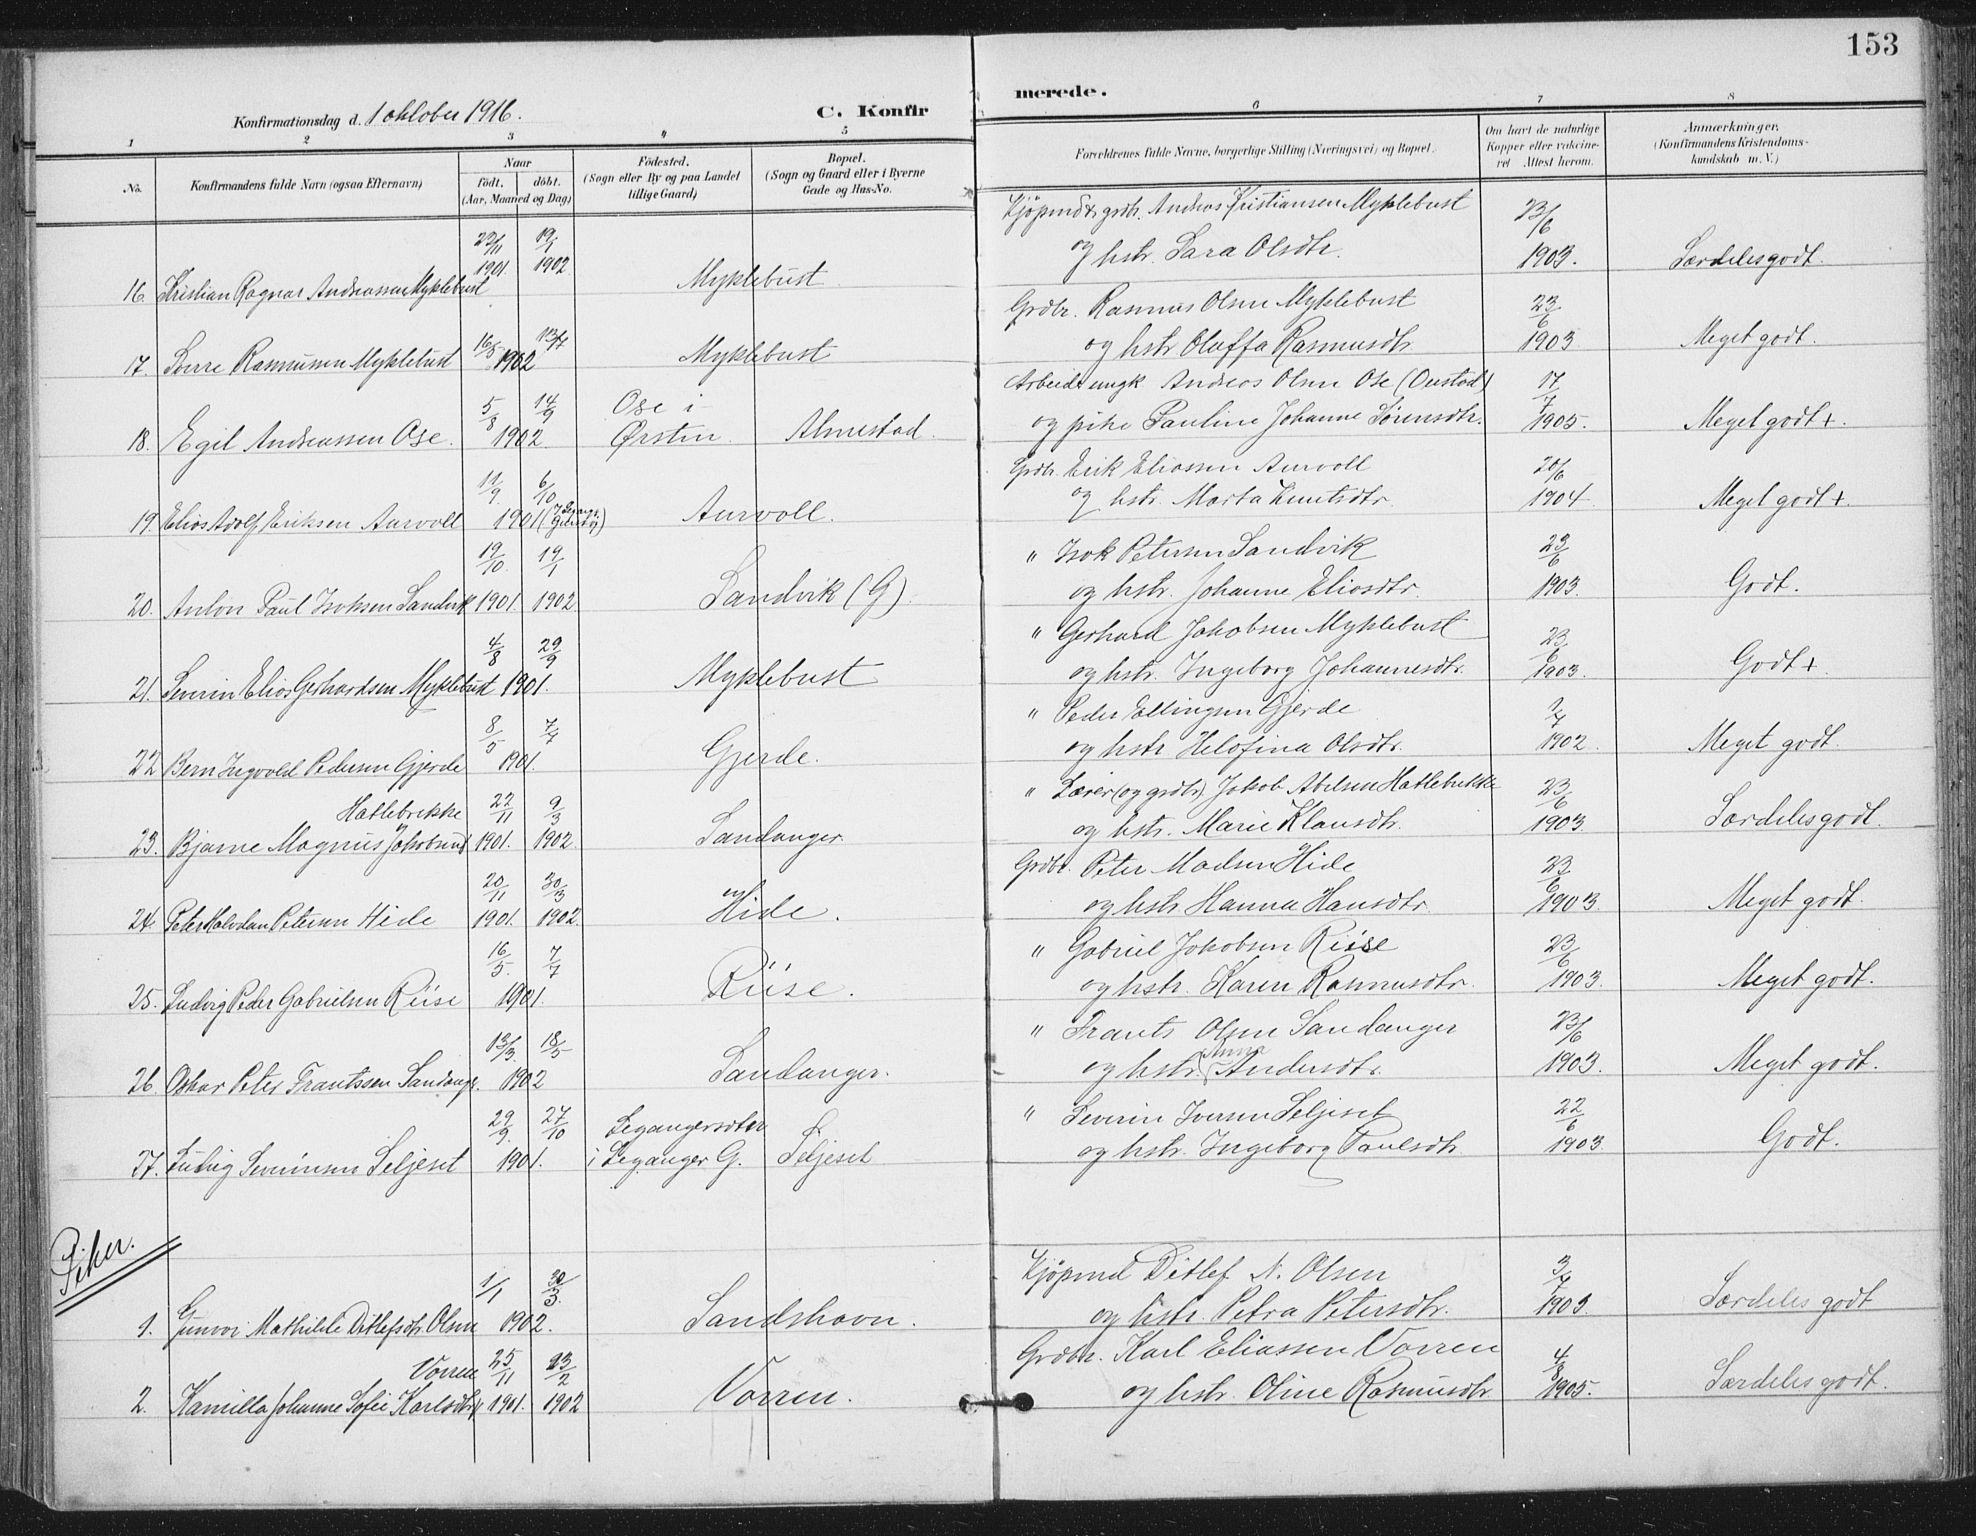 153
Konfirmationsdag d. 1 oktober 1916.
C. Konfir
merede.
1 2 3 4 5 6 7 8
No.
Konfirmandens fulde Navn (ogsaa Efternavn)
Naar
födt. döbt.
(Aar, Maaned og Dag)
Födested.
(Sogn eller By og paa Landet
tillige Gaard)
Bopæl.
(Sogn og Gaard eller i Byerne
Gade og Hus-No.
Forældrenes fulde Navne, borgerlige Stilling (Næringsvei) og Bopæl.
Om havt de naturlige
Kopper eller vakcine-
ret Attest herom.
Anmærkninger.
(Konfirmandens Kristendoms-
kundskab m. V.)
Kjøpmd & grdbr. Andreas Kristiansen Myklebust 23/6
19/1 og hstr. Sara Olsdtr. 1903. Særdeles godt.
1901. 1902
16. Kristian Ragnar Andreassen Myklebust Myklebust
Grdbr. Rasmus Olsen Myklebust 23/6
16/5 13/7 og hstr. Oluffa Rasmusdtr. 1903 Meget godt.
17. Sverre Rasmussen Myklebust 1902 Myklebust
Arbeids ungk Andreas Olsen Ose 17/7
5/8 14/9 Ose i og pike Pauline Johanne Sørensdtr. 1905. Meget godt +.
18. Egil Andreassen Ose. 1902. Ørsten Almestad.
Grdbr. Erik Eliassen Aurvoll 20/6
11/9 6/10 og hstr. Marta Knutsdtr. 1904 Meget godt +
19. Elias Adolf Eriksen Aurvoll 1901 Aurvoll.
" Isak Petersen Sandvik 23/6
19/10. 19/1 og hstr. Johanne Eliasdtr. 1903. Godt.
20. Anton Paul Isaksen Sandvik 1901. 1902. Sandvik (G)
" Gerhard Jakobsen Myklebust 23/6
4/8 29/9 og hstr. Ingeborg Johannesdtr. 1903. Godt +
21. Severin Elias Gerhardsen Myklebust 1901. Myklebust
" Peder Ellingsen Gjerde
8/5 7/7 og hstr. Helofina Olsdtr. 1902. Meget godt.
22 Bern Ingvald Pedersen Gjerde 1901. Gjerde.
" Lærer (og grdbr) Jakob Abelsen Hatlebrekke 23/6
Hatlebrekke 22/11 9/3 og hstr. Marie Klausdtr. 1903. Særdeles godt.
23. Bjarne Magnus Jakobsen 1901. 1902. Sandanger
Grdbr. Peter Madsen Hide 23/6
20/11 30/3 og hstr. Hanna Hansdtr. 1903. Meget godt.
24. Peter Halvdan Petersen Hide 1901. 1902. Hide.
" Gabriel Jakobsen Riise 23/6
16/5. 7/7 og hstr. Karen Rasmusdtr. 1903. Meget godt.
25. Ludvig Peder Gabrielsen Riise 1901. Riise.
" Frants Olsen Sandanger 23/6
13/3. 18/5 og hstr. Anna Andersdtr. 1903. Meget godt.
26. Oskar Peter Frantssen Sandanger. 1902 Sandanger.
" Severin Iversen Seljeset 22/6
29/9. 27/10 og hstr. Ingeborg Paulsdtr. 1903. Godt.
27. Ludvig Severinsen Seljeset 1901. i Leganger G. Seljeset
Piker.
Kjøpmd Ditlef N. Olsen 3/7
1/1 30/3. og hstr. Petra Petersdtr. 1903. Særdeles godt
1. Gunvor Mathilde Ditlefsdtr. Olsen 1902. Sandshavn.
Grdbr. Karl Eliassen Vorren 4/8
Vorren 25/11 23/2 og hstr. Oline Rasmusdtr. 1905. Særdeles godt.
2. Kamilla Johanne Sofie Karlsdtr. 1901. 1902 Vorren.